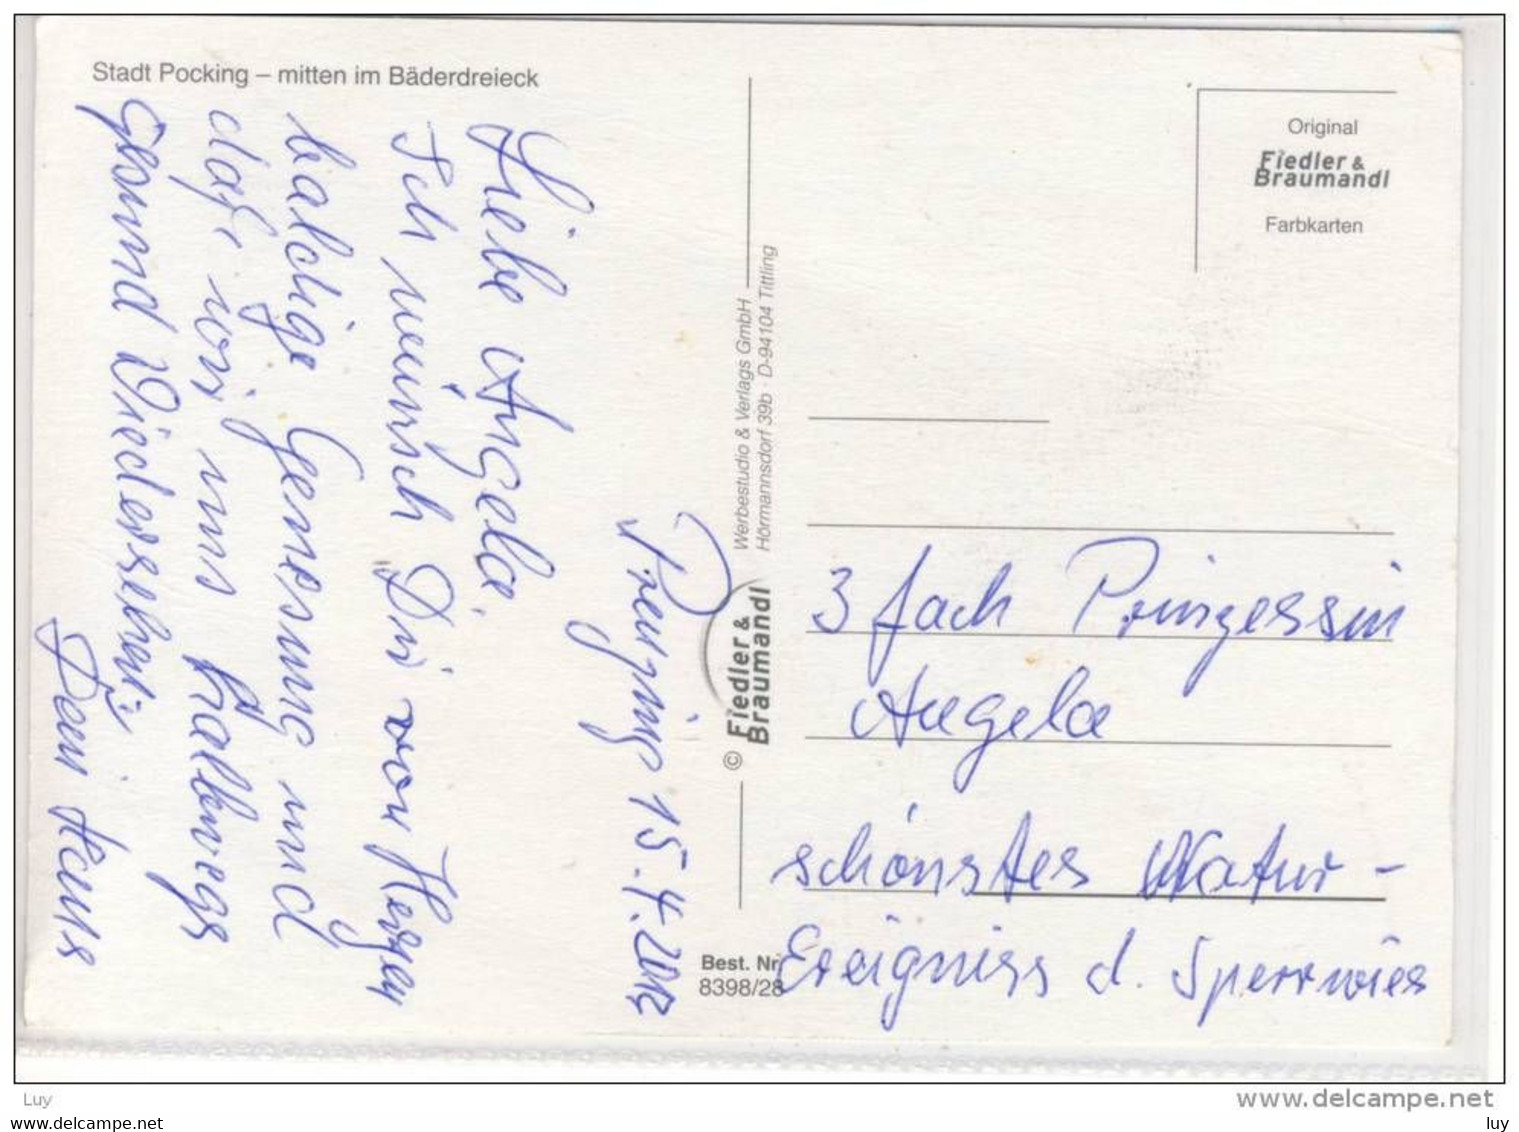 Stadt Pocking – mitten im Bäderdreieck
Preying 15.4.2012
Liebe Angela,
Ich wünsch Dir von Herzen
baldige Genesung und
daß wir uns halbwegs
Gsund Wiedersehen
Dein Hans
Werbestudio & Verlags GmbH
Hörmannsdorf 39b · D-94104 Tittling
© Fiedler &
Braumandl
Best. Nr.
8398/28
Original
Fiedler &
Braumandl
Farbkarten
3 fach Prinzessin
Angela
schönstes Natur-
Ereigniss d. Sperrwies
Luy
www.delcampe.net
www.delcampe.net
luy